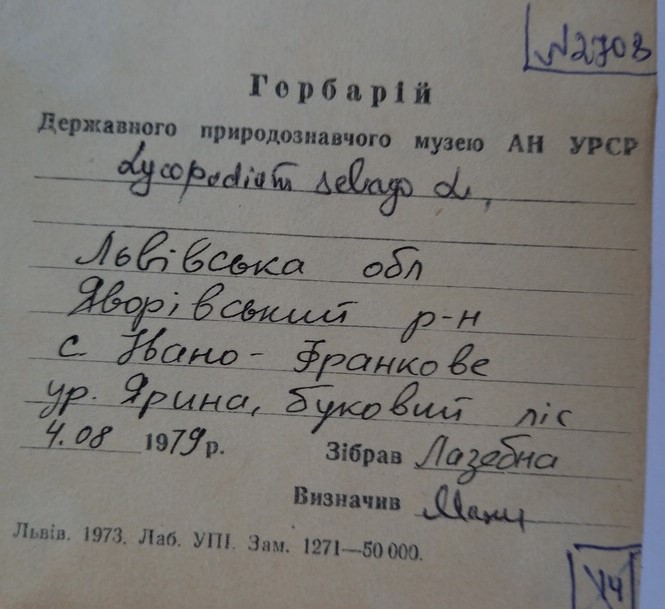 №2703
Гербарій
Державного природознавчого музею АН УРСР
Lycopodium selago L.
Львівська обл
Яворівський р-н
с. Івано-Франкове
ур. Ярина, буковий ліс
4.08 1979 р. Зібрав Лазебна
Визначив
Львів. 1973. Лаб. УПІ. Зам. 1271—50 000.